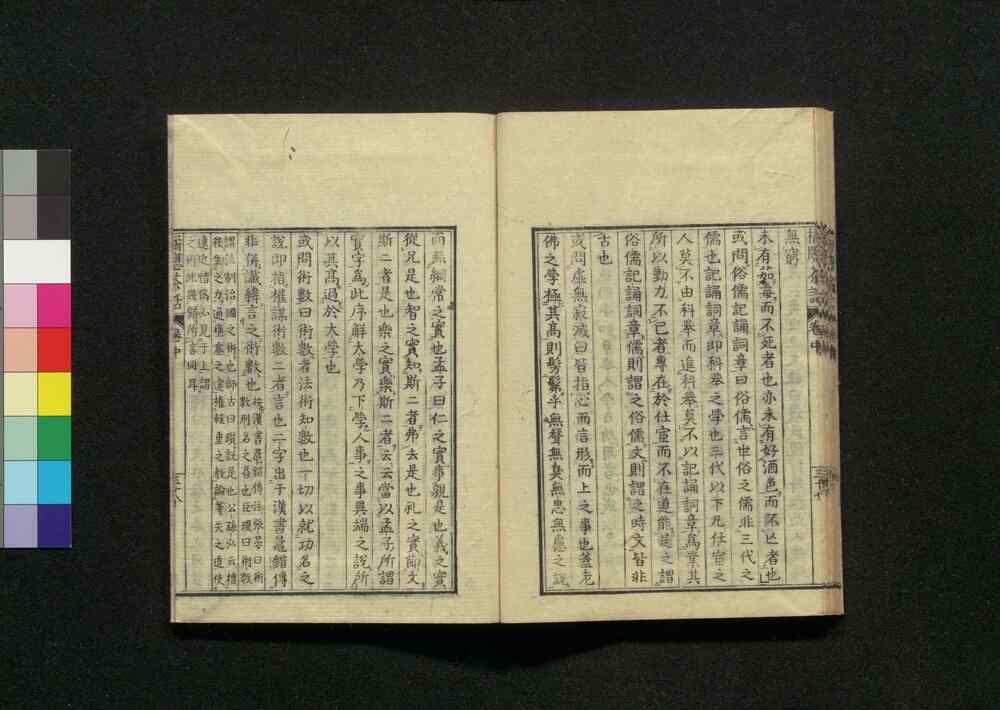 無窮
未有茹毒而不死者也亦未有好酒色而不亡者也
或問俗儒記誦詞章曰俗儒言世俗之儒非三代之
儒也記誦詞章即科挙之學也三代以下凡仕官之
人莫不由科挙而進科挙莫不以記誦詞章為業其
所以勤力不已者專在於仕宦而不在道能是之謂
俗儒記誦詞章儒則謂之俗儒文則謂之時文皆非
古也
或問虛無寂滅曰皆指心而言形而上之事也蓋老
佛之學極其高則髣髴乎無聲無臭無思無慮之說
而無綱常之實也孟子曰仁之實事親是也義之實
從兄是也智之實知斯二者弗去是也礼之實節文
斯二者是也樂之實樂斯二者云云當以孟子所謂
實字為此序解大學乃下學人事之事異端之說所
以其高過於大學也
或問術數曰術數者法術知數也一切以就功名之
說即指權謀術數二者言也二字出于漢書鼂錯傳
非讖緯言之術數也 按漢書鼂錯傳註張晏曰術數刑名之書也臣瓚曰術數
謂法制治國之術也師古曰瓚說是也公孫弘云擅
殺生之力通壅塞之塗權輕重之數論得失之道使
遠近情偽必見于上謂
之術此與錯所言同耳
卷中
卷中